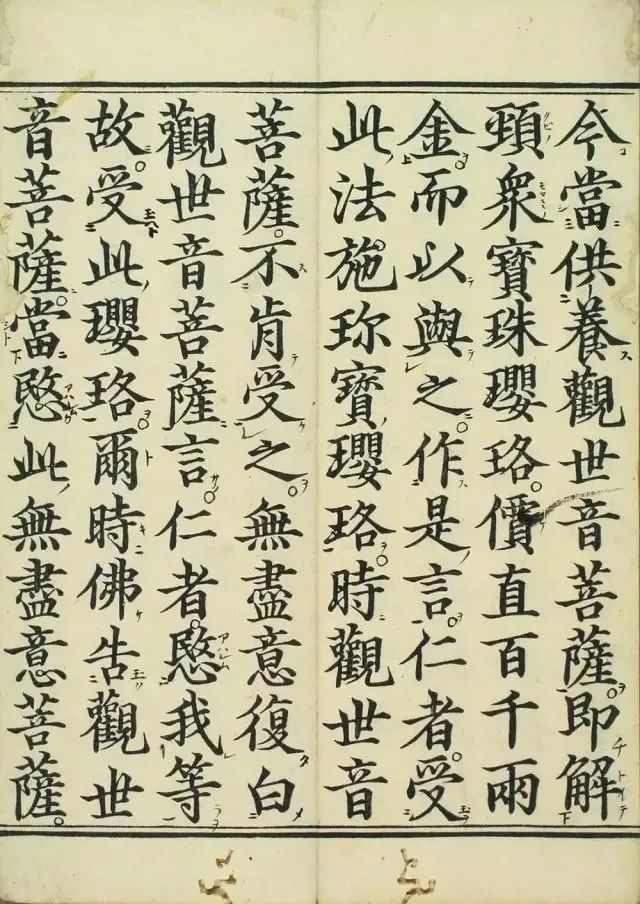 今當供養觀世音菩薩。即解
頸衆寶珠瓔珞。價直百千兩
金。而以與之。作是言。仁者。受
此法施。珎寶瓔珞。時觀世音
菩薩。不肯受之。無盡意復白
觀世音菩薩言。仁者。愍我等
故。受此瓔珞。爾時佛告觀世
音菩薩。當愍此無盡意菩薩。